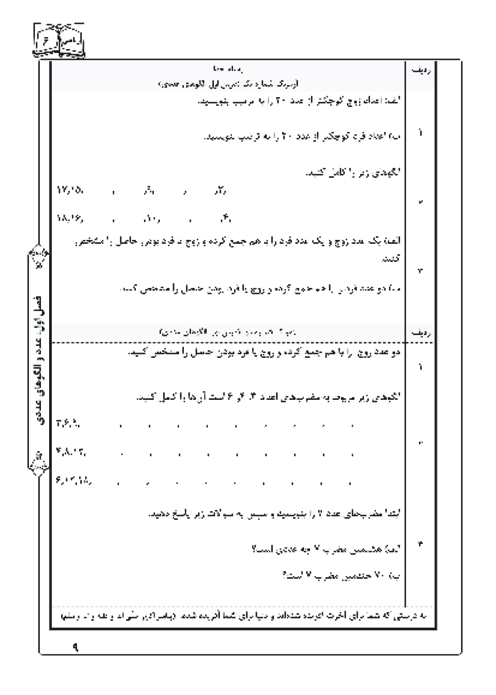 ریاضی ۶
ردیف
به نام خدا
(پیک شماره یک (درس اول الگوهای عددی
۱
الف) اعداد زوج کوچکتر از عدد ۲۰ را به ترتیب بنویسید.
ب) اعداد فرد کوچکتر از عدد ۲۰ را به ترتیب بنویسید.
۲
الگوهای زیر را کامل کنید.
۱۷,۱۵, , ,۹, , ,
۱۸,۱۶, , ,۱۰, , ,۴,
۳
الف) یک عدد زوج و یک عدد فرد را با هم جمع کرده و زوج یا فرد بودن حاصل را مشخص
کنید.
ب) دو عدد فرد را با هم جمع کرده و زوج یا فرد بودن حاصل را مشخص کنید.
ردیف
(درس اول الگوهای عددی)
۱
دو عدد زوج را با هم جمع کرده و زوج یا فرد بودن حاصل را مشخص کنید.
الگوهای زیر مربوط به مضرب‌های اعداد ۳، ۴ و ۶ است آن‌ها را کامل کنید.
۳,۶,۹, , , , , , , , ,
۴,۸,۱۲, , , , , , , , ,
۶,۱۲,۱۸, , , , , , , , ,
ابتدا مضرب‌های عدد ۷ را بنویسید و سپس به سوالات زیر پاسخ دهید.
الف) هشتمین مضرب ۷ چه عددی است؟
ب) ۷۰ چندمین مضرب ۷ است؟
به درستی که شما برای آخرت آفریده شده‌اید و دنیا برای شما آفریده شده. (پیامبر اکرم صلّی الله و علیه و آله و سلم)
فصل اول: عدد و الگوهای عددی
۹